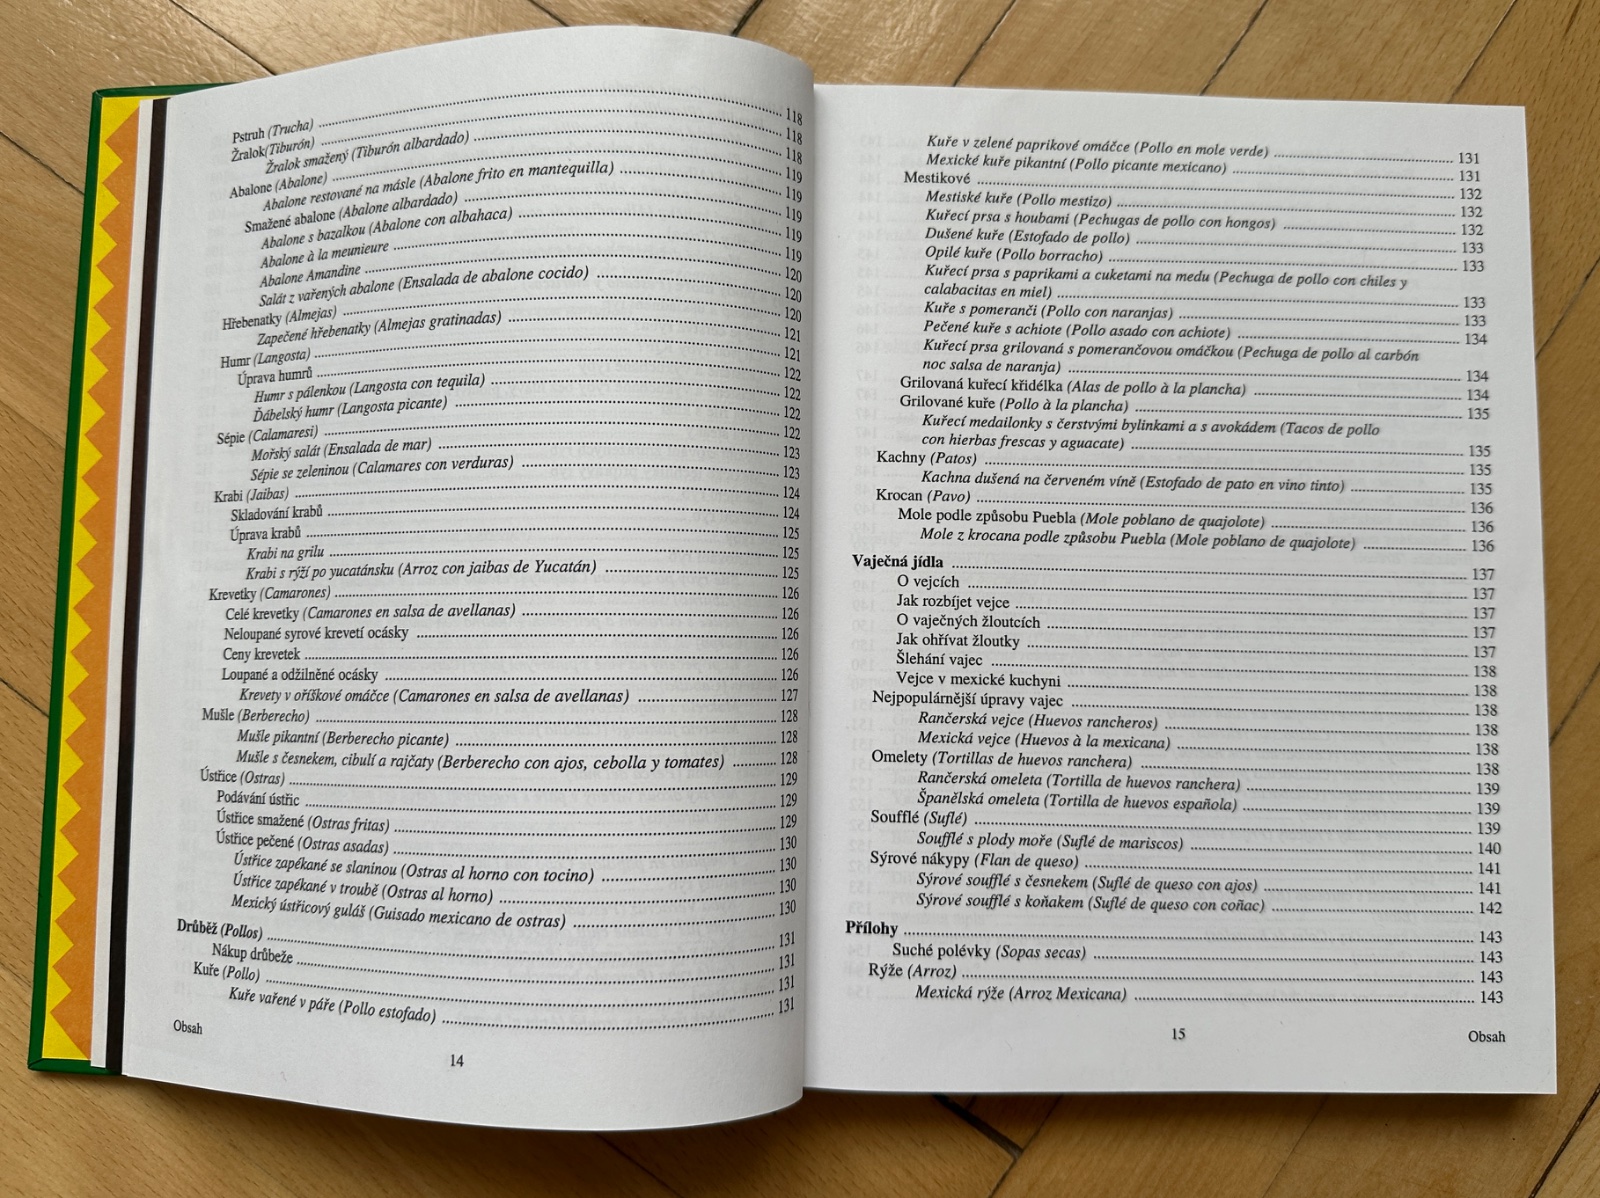 Pstruh (Trucha) ........ 118
Žralok(Tiburón) ........ 118
Žralok smažený (Tiburón albardado) ........ 118
Abalone (Abalone) ........ 119
Abalone restované na másle (Abalone frito en mantequilla) ........ 119
Smažené abalone (Abalone albardado) ........ 119
Abalone s bazalkou (Abalone con albahaca) ........ 119
Abalone à la meunieure ........ 119
Abalone Amandine ........ 120
Salát z vařených abalone (Ensalada de abalone cocido) ........ 120
Hřebenatky (Almejas) ........ 120
Zapečené hřebenatky (Almejas gratinadas) ........ 121
Humr (Langosta) ........ 121
Úprava humrů ........ 122
Humr s pálenkou (Langosta con tequila) ........ 122
Ďábelský humr (Langosta picante) ........ 122
Sépie (Calamaresi) ........ 122
Mořský salát (Ensalada de mar) ........ 123
Sépie se zeleninou (Calamares con verduras) ........ 123
Krabi (Jaibas) ........ 124
Skladování krabů ........ 124
Úprava krabů ........ 125
Krabi na grilu ........ 125
Krabi s rýží po yucatánsku (Arroz con jaibas de Yucatán) ........ 125
Krevetky (Camarones) ........ 126
Celé krevetky (Camarones en salsa de avellanas) ........ 126
Neloupané syrové krevetí ocásky ........ 126
Ceny krevetek ........ 126
Loupané a odžilněné ocásky ........ 126
Krevety v oříškové omáčce (Camarones en salsa de avellanas) ........ 127
Mušle (Berberecho) ........ 128
Mušle pikantní (Berberecho picante) ........ 128
Mušle s česnekem, cibulí a rajčaty (Berberecho con ajos, cebolla y tomates) ........ 128
Ústřice (Ostras) ........ 129
Podávání ústřic ........ 129
Ústřice smažené (Ostras fritas) ........ 129
Ústřice pečené (Ostras asadas) ........ 130
Ústřice zapékané se slaninou (Ostras al horno con tocino) ........ 130
Ústřice zapékané v troubě (Ostras al horno) ........ 130
Mexický ústřicový guláš (Guisado mexicano de ostras) ........ 130
Drůbež (Pollos) ........ 131
Nákup drůbeže ........ 131
Kuře (Pollo) ........ 131
Kuře vařené v páře (Pollo estofado) ........ 131
Obsah
14
Kuře v zelené paprikové omáčce (Pollo en mole verde) ........ 131
Mexické kuře pikantní (Pollo picante mexicano) ........ 131
Mestikové ........ 132
Mestiské kuře (Pollo mestizo) ........ 132
Kuřecí prsa s houbami (Pechugas de pollo con hongos) ........ 132
Dušené kuře (Estofado de pollo) ........ 133
Opilé kuře (Pollo borracho) ........ 133
Kuřecí prsa s paprikami a cuketami na medu (Pechuga de pollo con chiles y
calabacitas en miel) ........ 133
Kuře s pomeranči (Pollo con naranjas) ........ 133
Pečené kuře s achiote (Pollo asado con achiote) ........ 134
Kuřecí prsa grilovaná s pomerančovou omáčkou (Pechuga de pollo al carbón
noc salsa de naranja) ........ 134
Grilovaná kuřecí křidélka (Alas de pollo à la plancha) ........ 134
Grilované kuře (Pollo à la plancha) ........ 135
Kuřecí medailonky s čerstvými bylinkami a s avokádem (Tacos de pollo
con hierbas frescas y aguacate) ........ 135
Kachny (Patos) ........ 135
Kachna dušená na červeném víně (Estofado de pato en vino tinto) ........ 135
Krocan (Pavo) ........ 136
Mole podle způsobu Puebla (Mole poblano de quajolote) ........ 136
Mole z krocana podle způsobu Puebla (Mole poblano de quajolote) ........ 136
Vaječná jídla ........ 137
O vejcích ........ 137
Jak rozbíjet vejce ........ 137
O vaječných žloutcích ........ 137
Jak ohřívat žloutky ........ 137
Šlehání vajec ........ 138
Vejce v mexické kuchyni ........ 138
Nejpopulárnější úpravy vajec ........ 138
Rančerská vejce (Huevos rancheros) ........ 138
Mexická vejce (Huevos à la mexicana) ........ 138
Omelety (Tortillas de huevos ranchera) ........ 138
Rančerská omeleta (Tortilla de huevos ranchera) ........ 139
Španělská omeleta (Tortilla de huevos española) ........ 139
Soufflé (Suflé) ........ 139
Soufflé s plody moře (Suflé de mariscos) ........ 140
Sýrové nákypy (Flan de queso) ........ 141
Sýrové soufflé s česnekem (Suflé de queso con ajos) ........ 141
Sýrové soufflé s koňakem (Suflé de queso con coñac) ........ 142
Přílohy ........ 143
Suché polévky (Sopas secas) ........ 143
Rýže (Arroz) ........ 143
Mexická rýže (Arroz Mexicana) ........ 143
15
Obsah